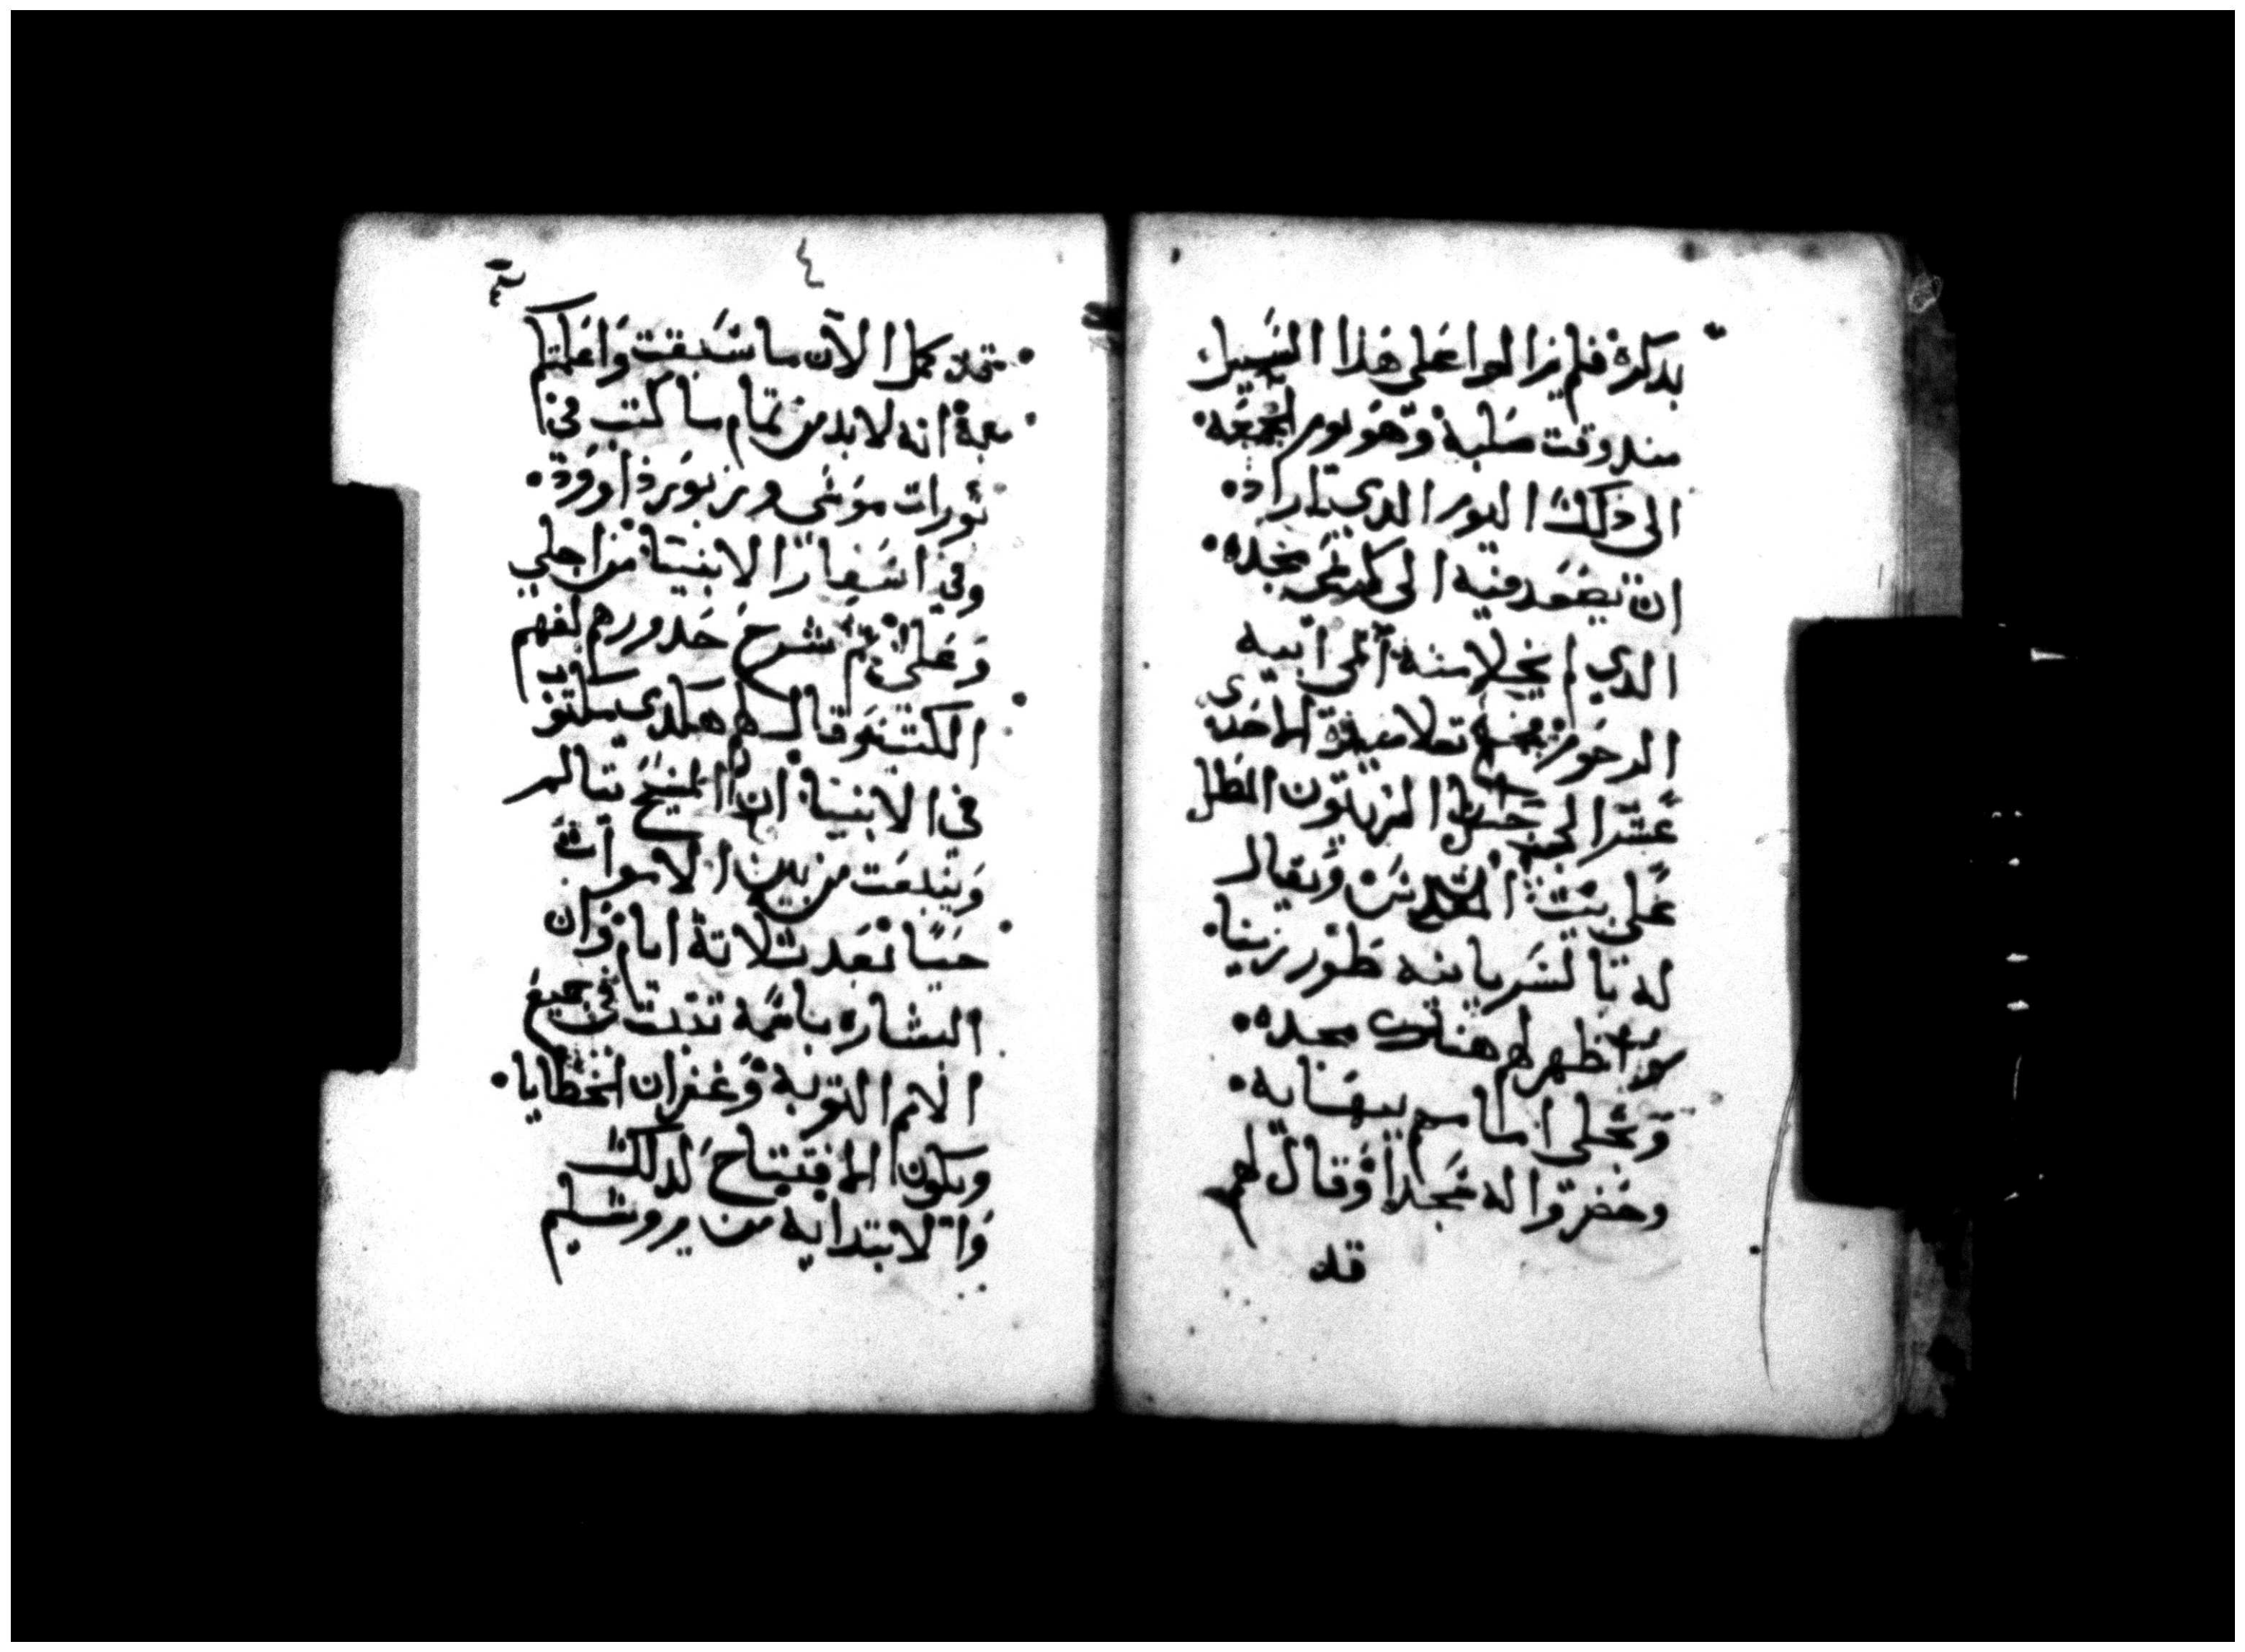 بدكره فلم يزالوا على هدا السبيل
مند وقت صلبة وهو يوم الجمعه
الى ذلك اليوم الدي اراد
ان يصعد فيه الى كرسي مجده
الدي لم يخلا منه الى ابيه
الدحور تلاميده الاحدى
عشر الى جبل الزيتون المطل
على بيت المقدس ويقال
له بالسريانيه طور زيتا
اظهر لهم هناك مجده
وتجلى امامهم ببهايه
وخضروا له سجدا وقال لهم
قد
٤
قد كمل الان ما سبقت واعلمتكم
معة انه لابد من تمام ما كتب في
تورات موسى وزبور داوود
وفي اسفار الانبيا من اجلي
وعلي ثم شرح صدورهم لفهم
الكتب وقال لهم هكدى مكتوب
في الانبيا ان المسيح يتالم
وينبعت من بين الاموات
حيا بعد تلاتة ايام وان
البشاره باسمه تتبت في جميع
الامم التوبة وغفران الخطايا
ويكون المفتتاح لدلك
والابتدايه من يروشليم